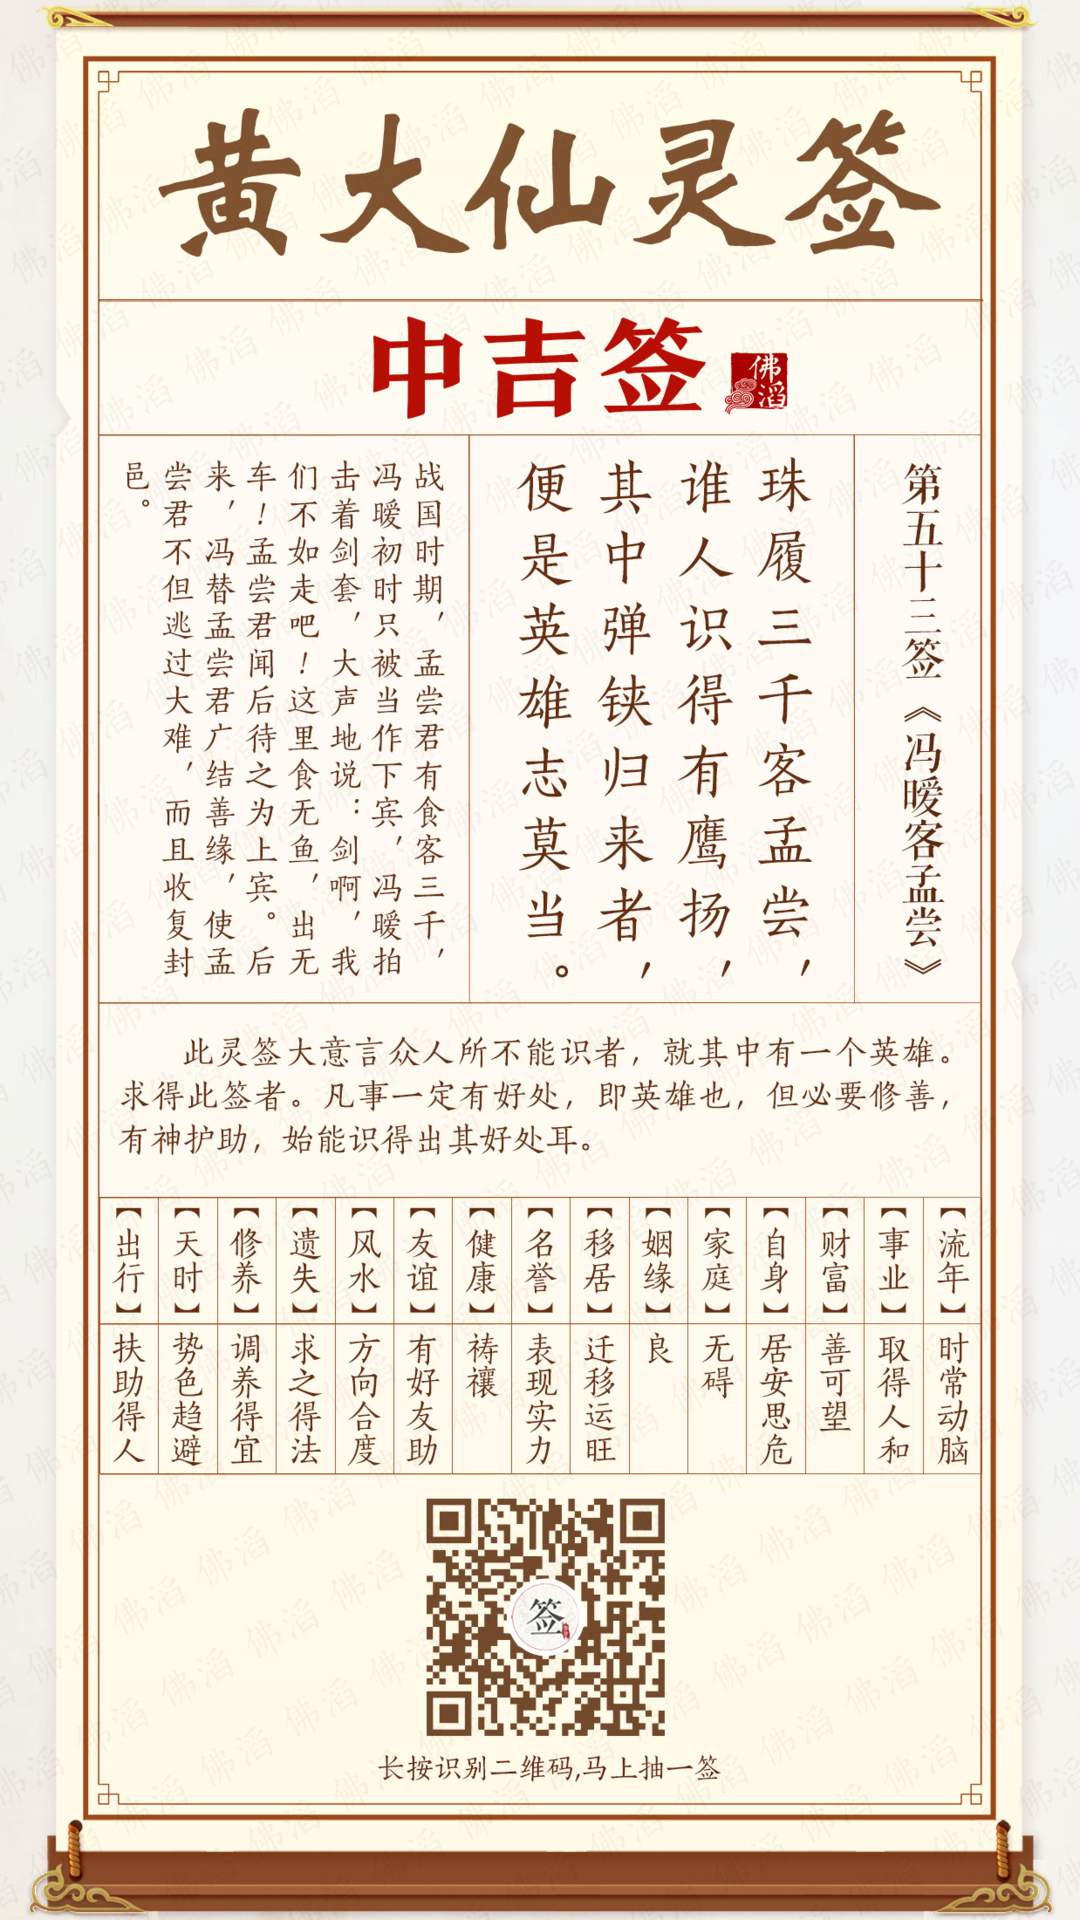 黄大仙灵签
中吉签
佛滔
第五十三签《冯暧客孟尝》
珠履三千客孟尝，
谁人识得有鹰扬，
其中弹铗归来者，
便是英雄志莫当。
战国时期，孟尝君有食客三千，
冯暧初时只被当作下宾，冯暧拍
击着剑套，大声地说：剑啊，我
们不如走吧！这里食无鱼，出无
车！孟尝君闻后待之为上宾。后
来，冯替孟尝君广结善缘，使孟
尝君不但逃过大难，而且收复封
邑。
此灵签大意言众人所不能识者，就其中有一个英雄。
求得此签者。凡事一定有好处，即英雄也，但必要修善，
有神护助，始能识得出其好处耳。
【流年】时常动脑
【事业】取得人和
【财富】善可望
【自身】居安思危
【家庭】无碍
【姻缘】良
【移居】迁移运旺
【名誉】表现实力
【健康】祷禳
【友谊】有好友助
【风水】方向合度
【遗失】求之得法
【修养】调养得宜
【天时】势色趋避
【出行】扶助得人
签
长按识别二维码,马上抽一签